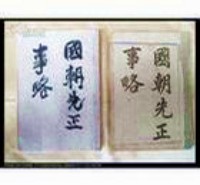 國朝先正
事略
國朝先正
事略